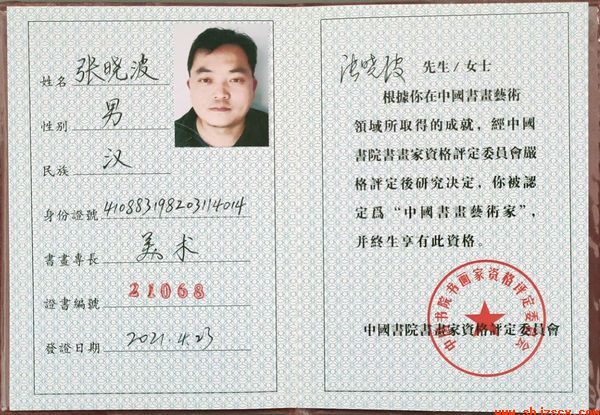 姓名 张晓波
性别 男
民族 汉
身份證號 410883198203114014
書畫專長 美术
證書編號 21068
發證日期 2021.4.23
张晓波 先生/女士
根據你在中國書畫藝術
領域所取得的成就，經中國
書院書畫家資格評定委員會嚴
格評定後研究決定，你被認
定爲“中國書畫藝術家”，
并終生享有此資格。
中国书院书画家资格评定委员会
中國書院書畫家資格評定委員會
www.shjzscy.com